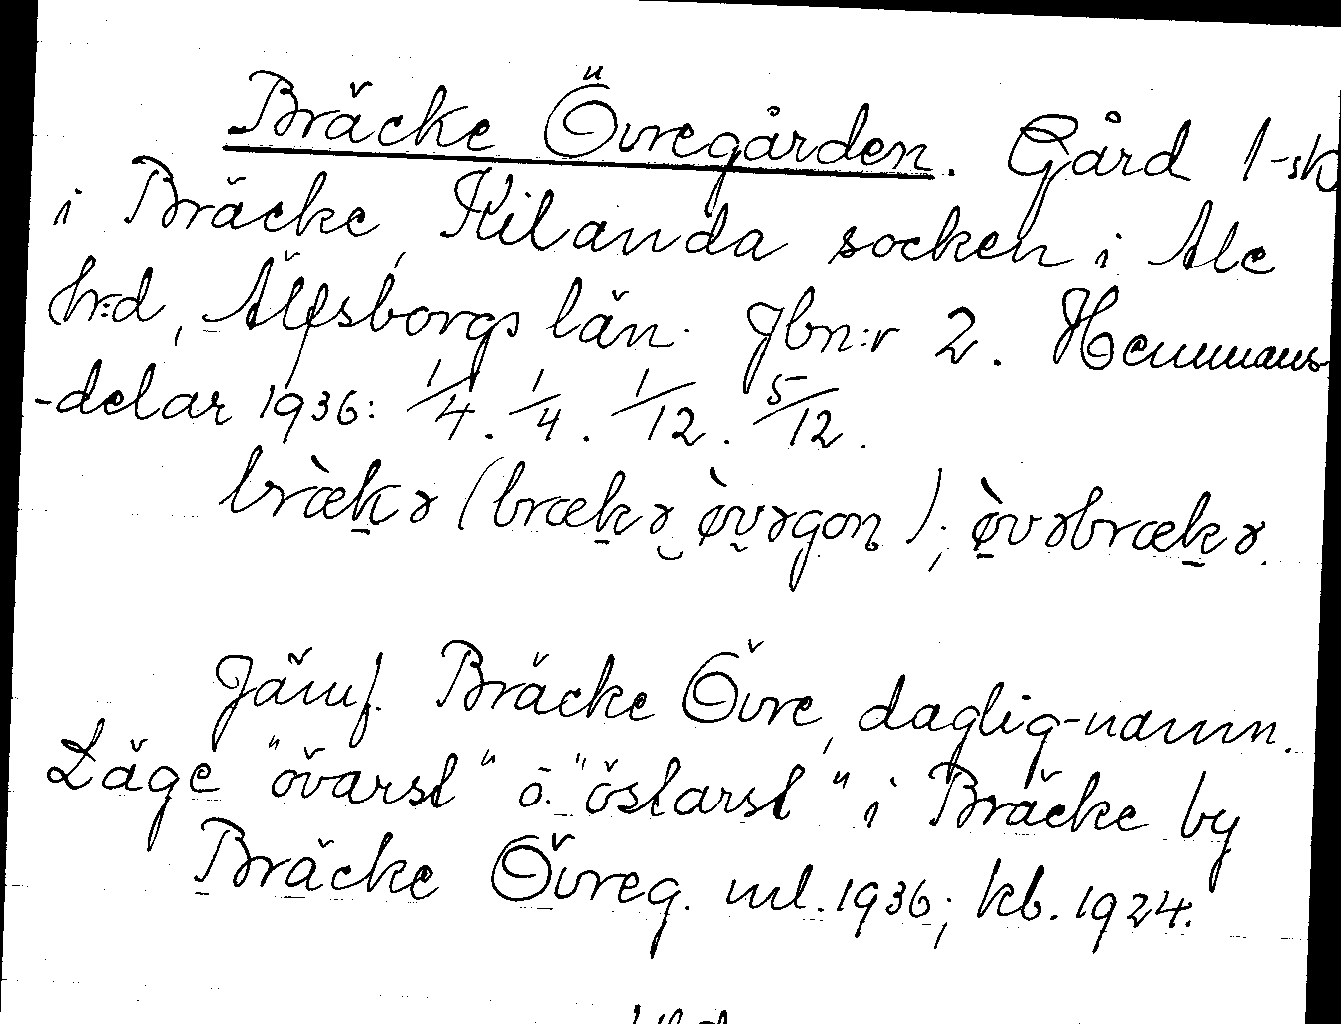 Bräcke Övregården. Gård 1-sk
i Bräcke, Kilanda socken i Ale
hrd, Älfsborgs län. Jbn:r 2. Hemmans-
-delar 1936: 1/4. 1/4. 1/12. 5/12.
bræ̀k̠ə (bræk̠ə ø̀vərgoɳ); ø̀vərbræk̠ə.
Jämf. Bräcke Övre, daglig-namn.
Läge "övarst" o. "östarst" i Bräcke by
Bräcke Övreg. ml. 1936; kb. 1924.